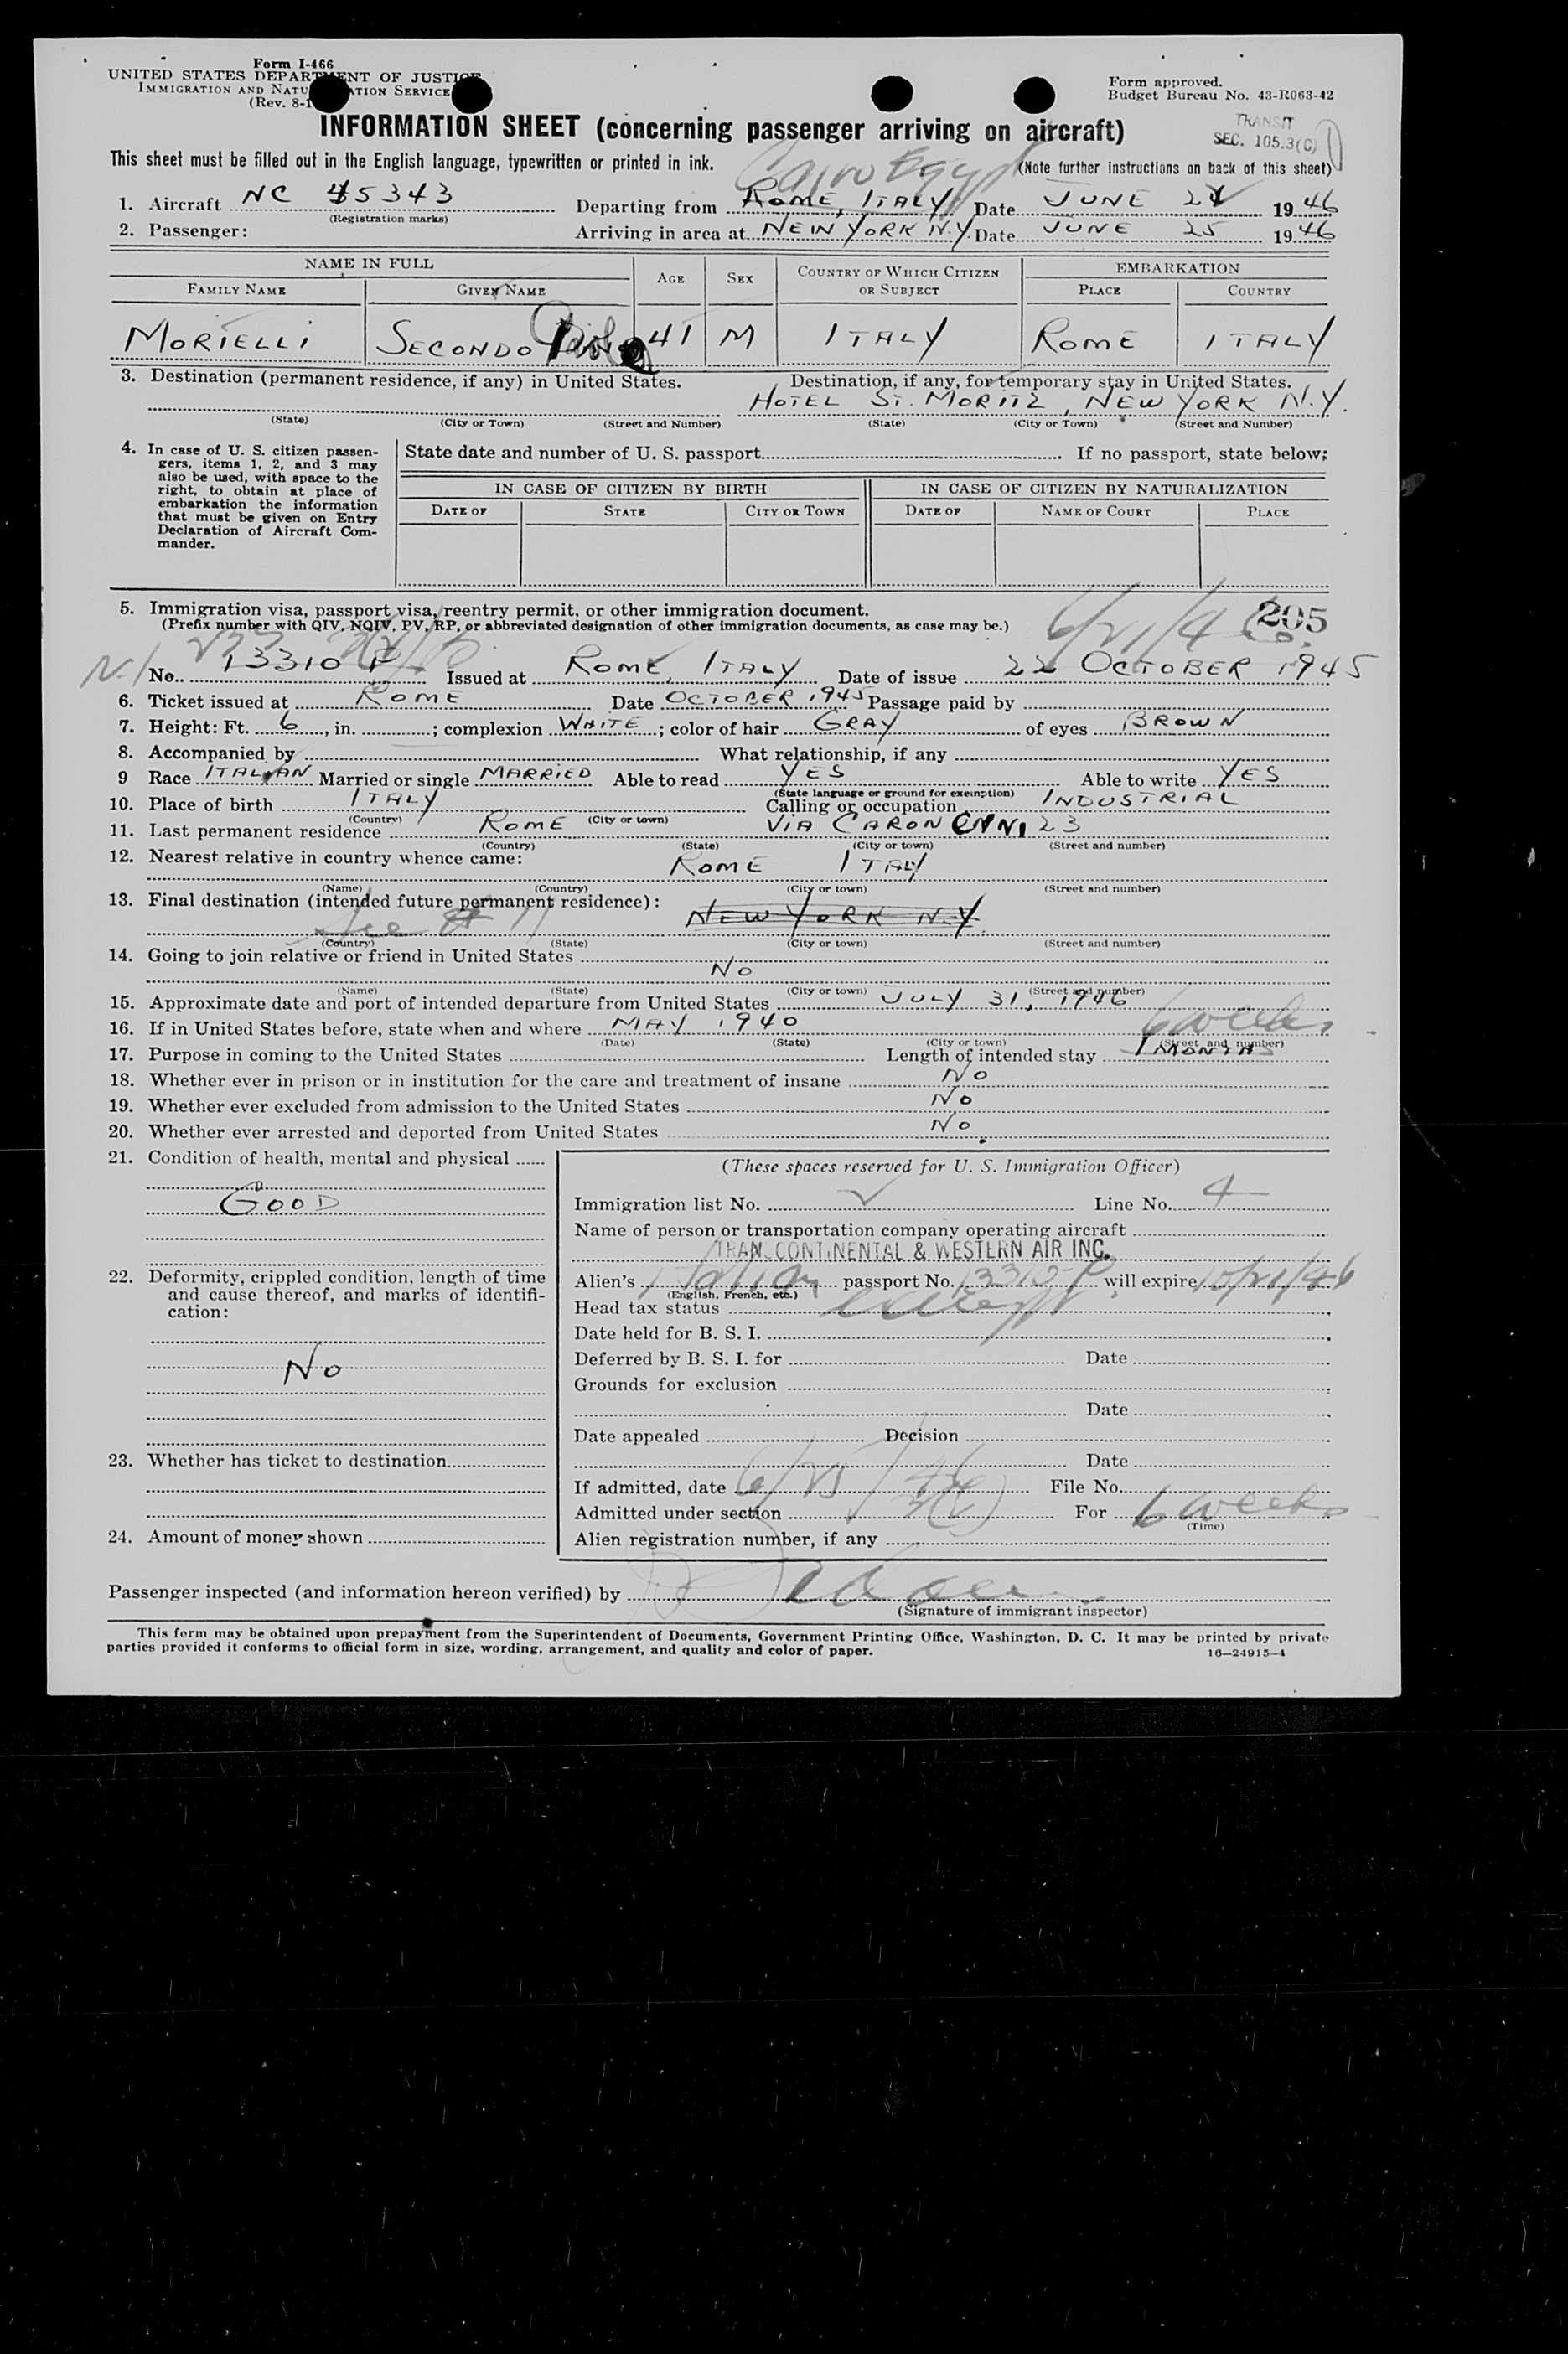 Form I-466
UNITED STATES DEPARTMENT OF JUSTICE
IMMIGRATION AND NATURALIZATION SERVICE
(Rev. 8-1
Form approved.
Budget Bureau No. 43-R063-42
INFORMATION SHEET (concerning passenger arriving on aircraft)
TRANSIT
SEC. 105.3(C)
This sheet must be filled out in the English language, typewritten or printed in ink.
(Note further instructions on back of this sheet)
Cairo Egypt
1. Aircraft NC 45343 Departing from ROME, ITALY Date JUNE 24 1946
(Registration marks)
2. Passenger: Arriving in area at NEW YORK N.Y. Date JUNE 25 1946
NAME IN FULL AGE SEX COUNTRY OF WHICH CITIZEN OR SUBJECT EMBARKATION
FAMILY NAME GIVEN NAME PLACE COUNTRY
MORIELLI SECONDO 41 M ITALY ROME ITALY
3. Destination (permanent residence, if any) in United States. Destination, if any, for temporary stay in United States.
HOTEL ST. MORITZ, NEW YORK N.Y.
(State) (City or Town) (Street and Number) (State) (City or Town) (Street and Number)
4. In case of U. S. citizen passengers, items 1, 2, and 3 may also be used, with space to the right, to obtain at place of embarkation the information that must be given on Entry Declaration of Aircraft Commander.
State date and number of U. S. passport If no passport, state below;
IN CASE OF CITIZEN BY BIRTH IN CASE OF CITIZEN BY NATURALIZATION
DATE OF STATE CITY OR TOWN DATE OF NAME OF COURT PLACE
5. Immigration visa, passport visa, reentry permit, or other immigration document.
(Prefix number with QIV, NQIV, PV, RP, or abbreviated designation of other immigration documents, as case may be.)
6/21/46 205
No. 13310 P Issued at ROME, ITALY Date of issue 22 OCTOBER 1945
6. Ticket issued at ROME Date OCTOBER 1945 Passage paid by
7. Height: Ft. 6, in. ; complexion WHITE; color of hair GRAY of eyes BROWN
8. Accompanied by What relationship, if any
9 Race ITALIAN Married or single MARRIED Able to read YES Able to write YES
(State language or ground for exemption)
10. Place of birth ITALY Calling or occupation INDUSTRIAL
(Country) (City or town)
11. Last permanent residence ROME VIA CARONCINI 23
(Country) (State) (City or town) (Street and number)
12. Nearest relative in country whence came: ROME ITALY
(Name) (Country) (City or town) (Street and number)
13. Final destination (intended future permanent residence): NEW YORK N.Y.
See # 11
(Country) (State) (City or town) (Street and number)
14. Going to join relative or friend in United States
NO
(Name) (State) (City or town) (Street and number)
15. Approximate date and port of intended departure from United States JULY 31, 1946
16. If in United States before, state when and where MAY 1940 6 weeks
(Date) (State) (City or town) (Street and number)
17. Purpose in coming to the United States Length of intended stay 1 MONTH
18. Whether ever in prison or in institution for the care and treatment of insane NO
19. Whether ever excluded from admission to the United States NO
20. Whether ever arrested and deported from United States NO
21. Condition of health, mental and physical
GOOD
22. Deformity, crippled condition, length of time and cause thereof, and marks of identification:
NO
23. Whether has ticket to destination
24. Amount of money shown
(These spaces reserved for U. S. Immigration Officer)
Immigration list No. Line No. 4
Name of person or transportation company operating aircraft
TRANSCONTINENTAL & WESTERN AIR INC.
Alien's Italian passport No. 13310-P will expire 10/21/46
(English, French, etc.)
Head tax status exempt
Date held for B. S. I.
Deferred by B. S. I. for Date
Grounds for exclusion
Date
Date appealed Decision
Date
If admitted, date 6/25/46 File No.
Admitted under section 3(2) For 6 weeks
(Time)
Alien registration number, if any
Passenger inspected (and information hereon verified) by
(Signature of immigrant inspector)
This form may be obtained upon prepayment from the Superintendent of Documents, Government Printing Office, Washington, D. C. It may be printed by private
parties provided it conforms to official form in size, wording, arrangement, and quality and color of paper.
16—24915-1